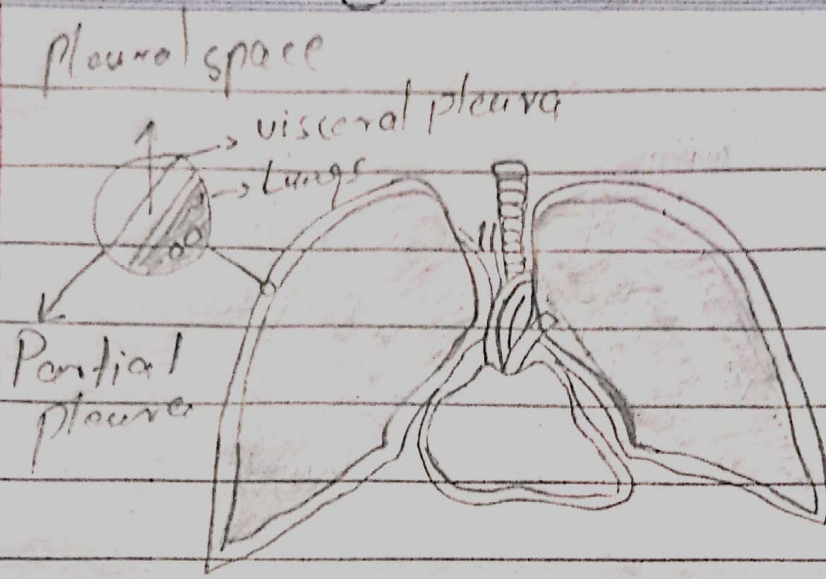 Pleural space
visceral pleura
Lungs
Partial
pleura